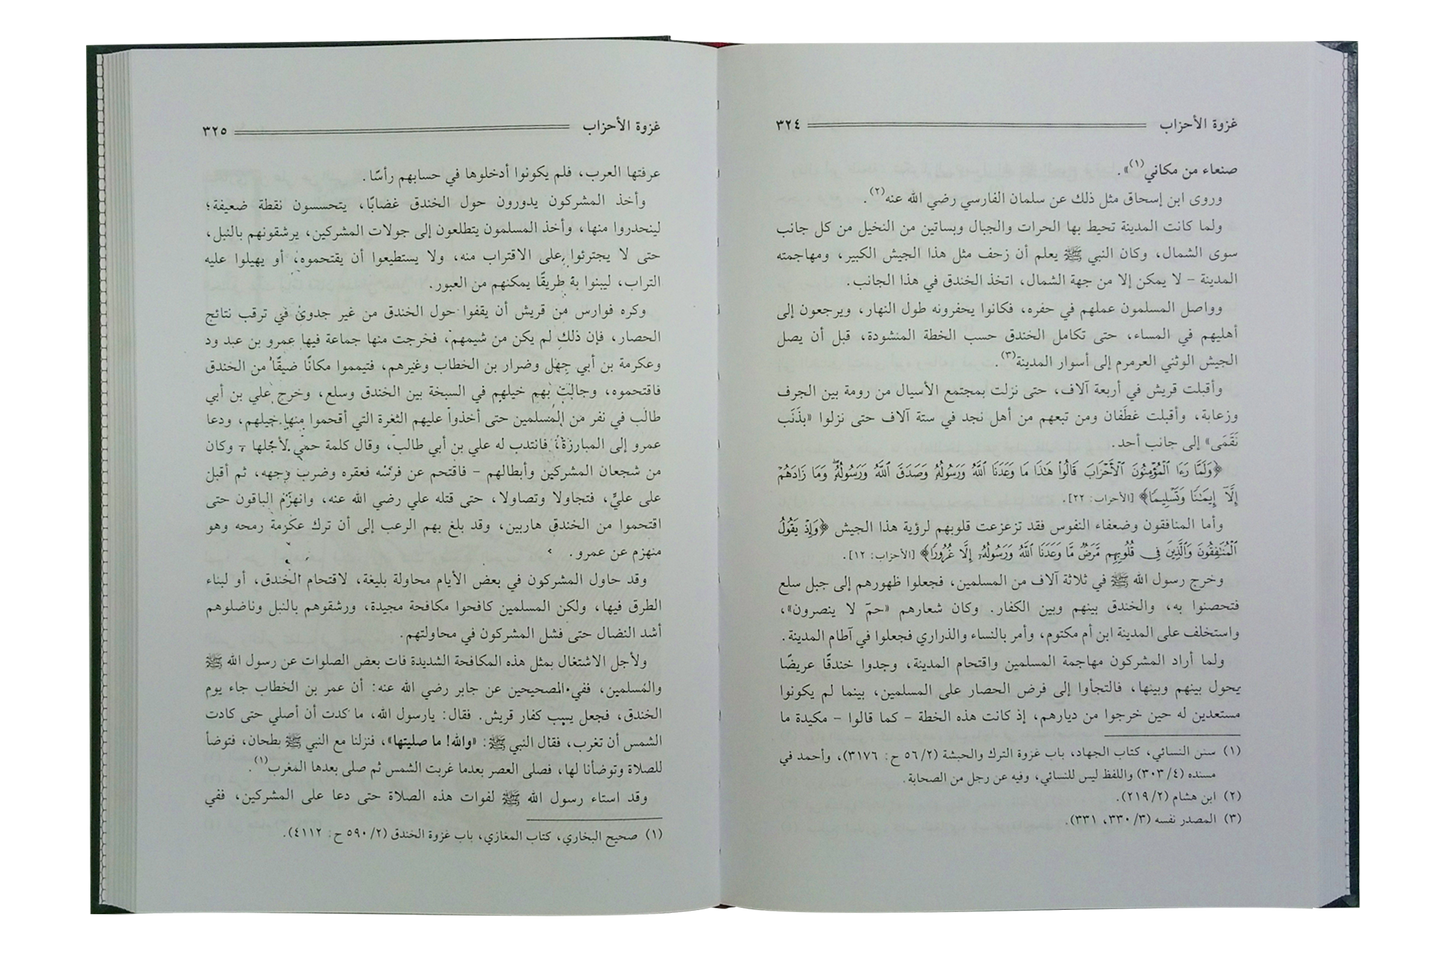 غزوة الأحزاب ٣٢٤
صنعاء من مكاني(١)».
وروى ابن إسحاق مثل ذلك عن سلمان الفارسي رضي الله عنه(٢).
ولما كانت المدينة تحيط بها الحرات والجبال وبساتين من النخيل من كل جانب
سوى الشمال، وكان النبي ﷺ يعلم أن زحف مثل هذا الجيش الكبير، ومهاجمته
المدينة – لا يمكن إلا من جهة الشمال، اتخذ الخندق في هذا الجانب.
وواصل المسلمون عملهم في حفره، فكانوا يحفرونه طول النهار، ويرجعون إلى
أهليهم في المساء، حتى تكامل الخندق حسب الخطة المنشودة، قبل أن يصل
الجيش الوثني العرمرم إلى أسوار المدينة(٣).
وأقبلت قريش في أربعة آلاف، حتى نزلت بمجتمع الأسيال من رومة بين الجرف
وزعابة، وأقبلت غطَفان ومن تبعهم من أهل نجد في ستة آلاف حتى نزلوا «بذَنَب
نَقَمَى» إلى جانب أحد.
﴿وَلَمَّا رَءَا ٱلْمُؤْمِنُونَ ٱلْأَحْزَابَ قَالُوا۟ هَٰذَا مَا وَعَدَنَا ٱللَّهُ وَرَسُولُهُۥ وَصَدَقَ ٱللَّهُ وَرَسُولُهُۥۚ وَمَا زَادَهُمْ
إِلَّآ إِيمَٰنًا وَتَسْلِيمًا﴾ [الأحزاب: ٢٢].
وأما المنافقون وضعفاء النفوس فقد تزعزعت قلوبهم لرؤية هذا الجيش ﴿وَإِذْ يَقُولُ
ٱلْمُنَٰفِقُونَ وَٱلَّذِينَ فِى قُلُوبِهِم مَّرَضٌ مَّا وَعَدَنَا ٱللَّهُ وَرَسُولُهُۥٓ إِلَّا غُرُورًا﴾ [الأحزاب: ١٢].
وخرج رسول الله ﷺ في ثلاثة آلاف من المسلمين، فجعلوا ظهورهم إلى جبل سلع
فتحصنوا به، والخندق بينهم وبين الكفار. وكان شعارهم «حمّ لا ينصرون»،
واستخلف على المدينة ابن أم مكتوم، وأمر بالنساء والذراري فجعلوا في آطام المدينة.
ولما أراد المشركون مهاجمة المسلمين واقتحام المدينة، وجدوا خندقًا عريضًا
يحول بينهم وبينها، فالتجأوا إلى فرض الحصار على المسلمين، بينما لم يكونوا
مستعدين له حين خرجوا من ديارهم، إذ كانت هذه الخطة – كما قالوا – مكيدة ما
(١) سنن النسائي، كتاب الجهاد، باب غزوة الترك والحبشة (٥٦/٢ ح: ٣١٧٦)، وأحمد في
مسنده (٣٠٣/٤) واللفظ ليس للنسائي، وفيه عن رجل من الصحابة.
(٢) ابن هشام (٢١٩/٢).
(٣) المصدر نفسه (٣/ ٣٣٠، ٣٣١).
غزوة الأحزاب ٣٢٥
عرفتها العرب، فلم يكونوا أدخلوها في حسابهم رأسًا.
وأخذ المشركون يدورون حول الخندق غضابًا، يتحسسون نقطة ضعيفة؛
لينحدروا منها، وأخذ المسلمون يتطلعون إلى جولات المشركين، يرشقونهم بالنبل،
حتى لا يجترئوا على الاقتراب منه، ولا يستطيعوا أن يقتحموه، أو يهيلوا عليه
التراب، ليبنوا به طريقًا يمكنهم من العبور.
وكره فوارس من قريش أن يقفوا حول الخندق من غير جدوىٰ في ترقب نتائج
الحصار، فإن ذلك لم يكن من شيمهم، فخرجت منها جماعة فيها عمرو بن عبد ود
وعكرمة بن أبي جهل وضرار بن الخطاب وغيرهم، فتيمموا مكانًا ضيقًا من الخندق
فاقتحموه، وجالت بهم خيلهم في السبخة بين الخندق وسلع، وخرج علي بن أبي
طالب في نفر من المسلمين حتى أخذوا عليهم الثغرة التي أقحموا منها خيلهم، ودعا
عمرو إلى المبارزة، فانتدب له علي بن أبي طالب، وقال كلمة حمي لأجلها – وكان
من شجعان المشركين وأبطالهم – فاقتحم عن فرسه فعقره وضرب وجهه، ثم أقبل
على عليٍّ، فتجاولا وتصاولا، حتى قتله علي رضي الله عنه، وانهزم الباقون حتى
اقتحموا من الخندق هاربين، وقد بلغ بهم الرعب إلى أن ترك عكرمة رمحه وهو
منهزم عن عمرو.
وقد حاول المشركون في بعض الأيام محاولة بليغة، لاقتحام الخندق، أو لبناء
الطرق فيها، ولكن المسلمين كافحوا مكافحة مجيدة، ورشقوهم بالنبل وناضلوهم
أشد النضال حتى فشل المشركون في محاولتهم.
ولأجل الاشتغال بمثل هذه المكافحة الشديدة فات بعض الصلوات عن رسول الله ﷺ
والمسلمين، ففي الصحيحين عن جابر رضي الله عنه: أن عمر بن الخطاب جاء يوم
الخندق، فجعل يسب كفار قريش. فقال: يارسول الله، ما كدت أن أصلي حتى كادت
الشمس أن تغرب، فقال النبي ﷺ: «والله! ما صليتها»، فنزلنا مع النبي ﷺ بطحان، فتوضأ
للصلاة وتوضأنا لها، فصلى العصر بعدما غربت الشمس ثم صلى بعدها المغرب(١).
وقد استاء رسول الله ﷺ لفوات هذه الصلاة حتى دعا على المشركين، ففي
(١) صحيح البخاري، كتاب المغازي، باب غزوة الخندق (٢/ ٥٩٠ ح: ٤١١٢).